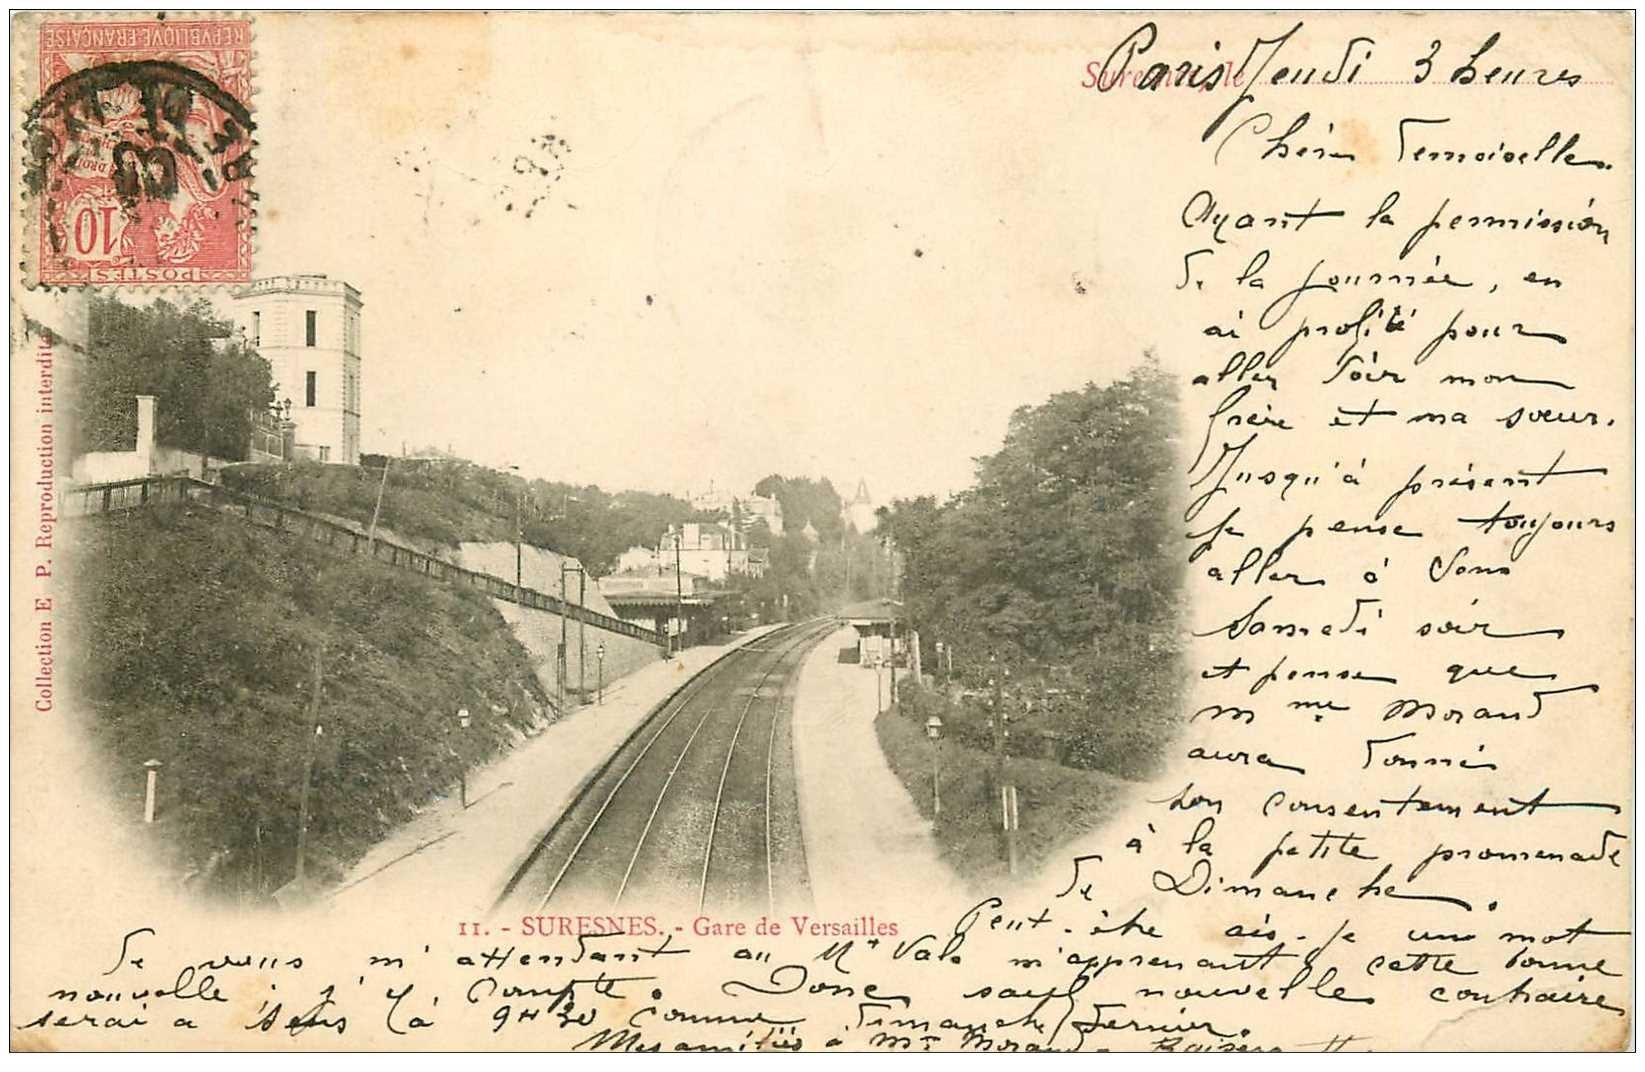 REPVBLIQVE FRANÇAISE
10
POSTES
Collection E P. Reproduction interdite
Suresnes, le
Paris Jeudi 3 heures
Chère Demoiselle.
Ayant la permission
de la journée, en
ai profité pour
aller voir mon
frère et ma soeur.
Jusqu'à présent
je pense toujours
aller à vous
Samedi soir
et pense que
Mme Morand
aura donné
son consentement
à la petite promenade
de Dimanche.
11. - SURESNES. - Gare de Versailles
Peut-être ais-je un mot
de vous m'attendant au Mt Vale m'apprenant cette bonne
nouvelle; j'y compte. Donc sauf nouvelle contraire
serai a 9H30 comme dimanche dernier.
Mes amitiés à Mme Morand Baisers